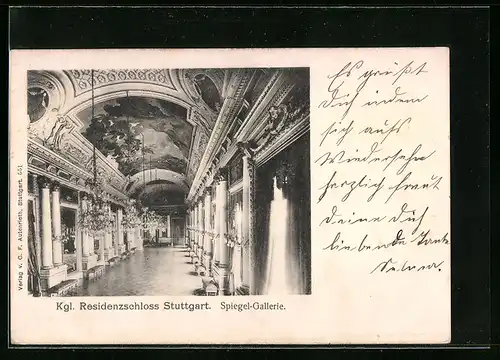 Verlag v. C. F. Autenrieth, Stuttgart. 551
Kgl. Residenzschloss Stuttgart. Spiegel-Gallerie.
Es grüßt
Dich indem
sich aufs
Wiedersehn
herzlich freut
Deine Dich
liebende Tante